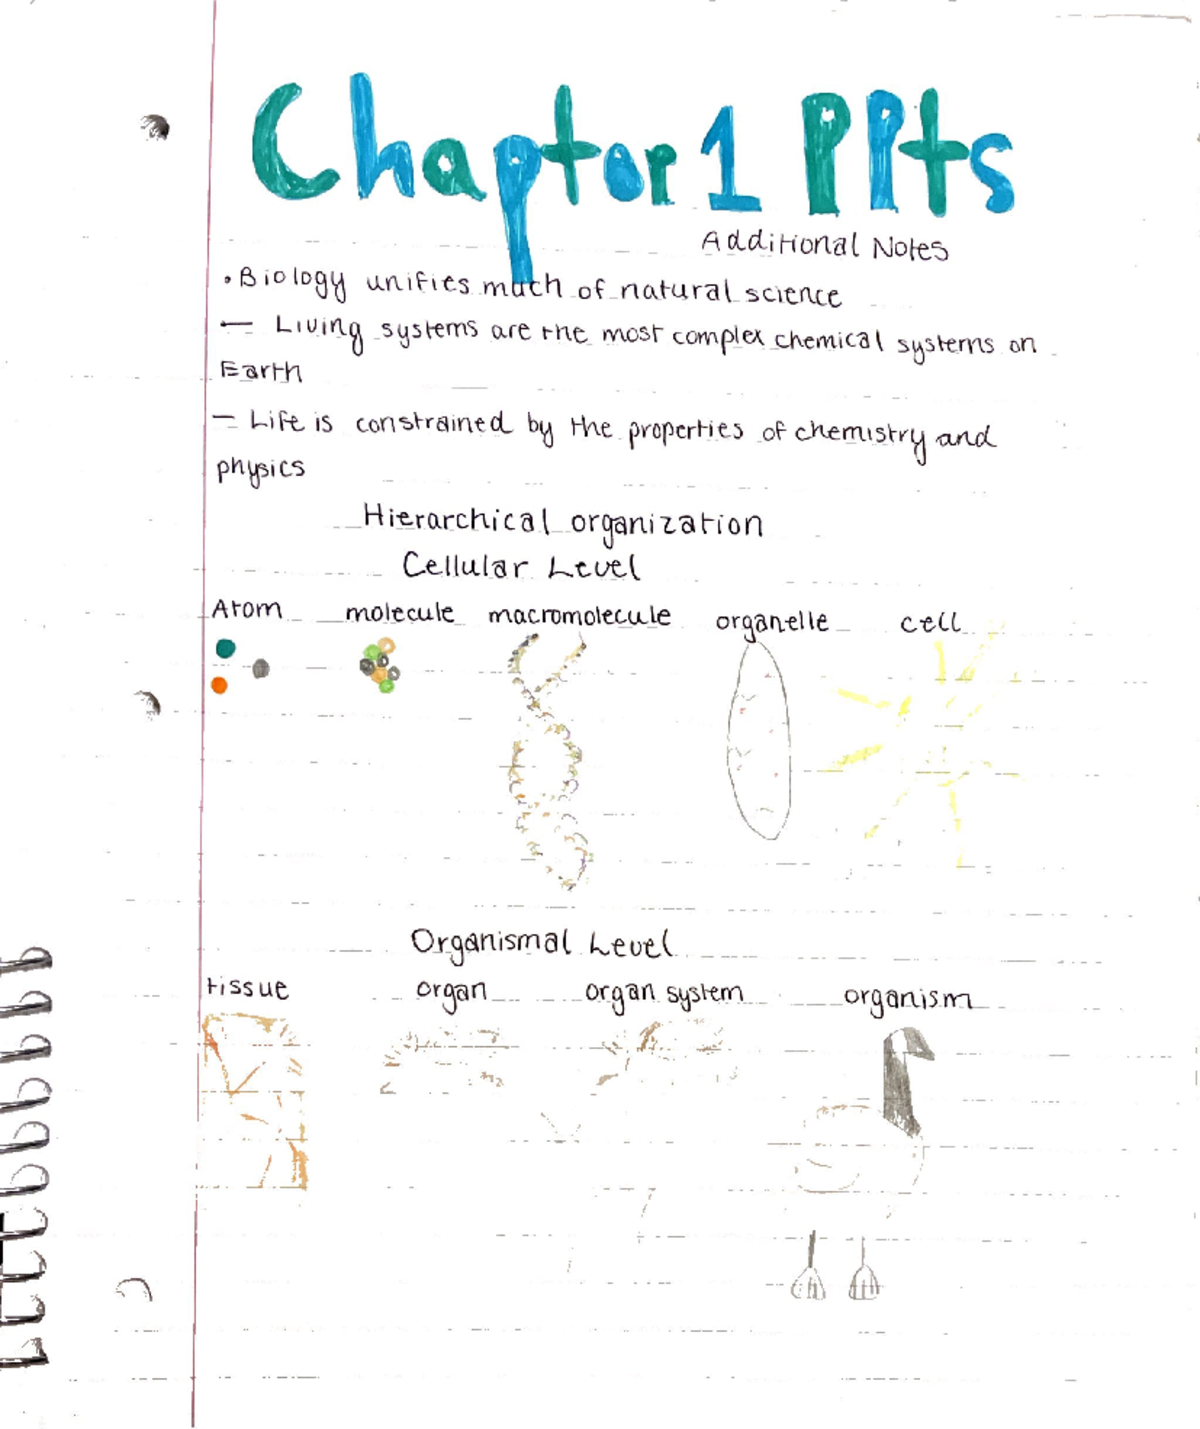 Chapter 1 PPts
Additional Notes
• Biology unifies much of natural science
— Living systems are the most complex chemical systems on
Earth
— Life is constrained by the properties of chemistry and
physics
Hierarchical organization
Cellular Level
Atom molecule macromolecule organelle cell
Organismal Level
tissue organ organ system organism